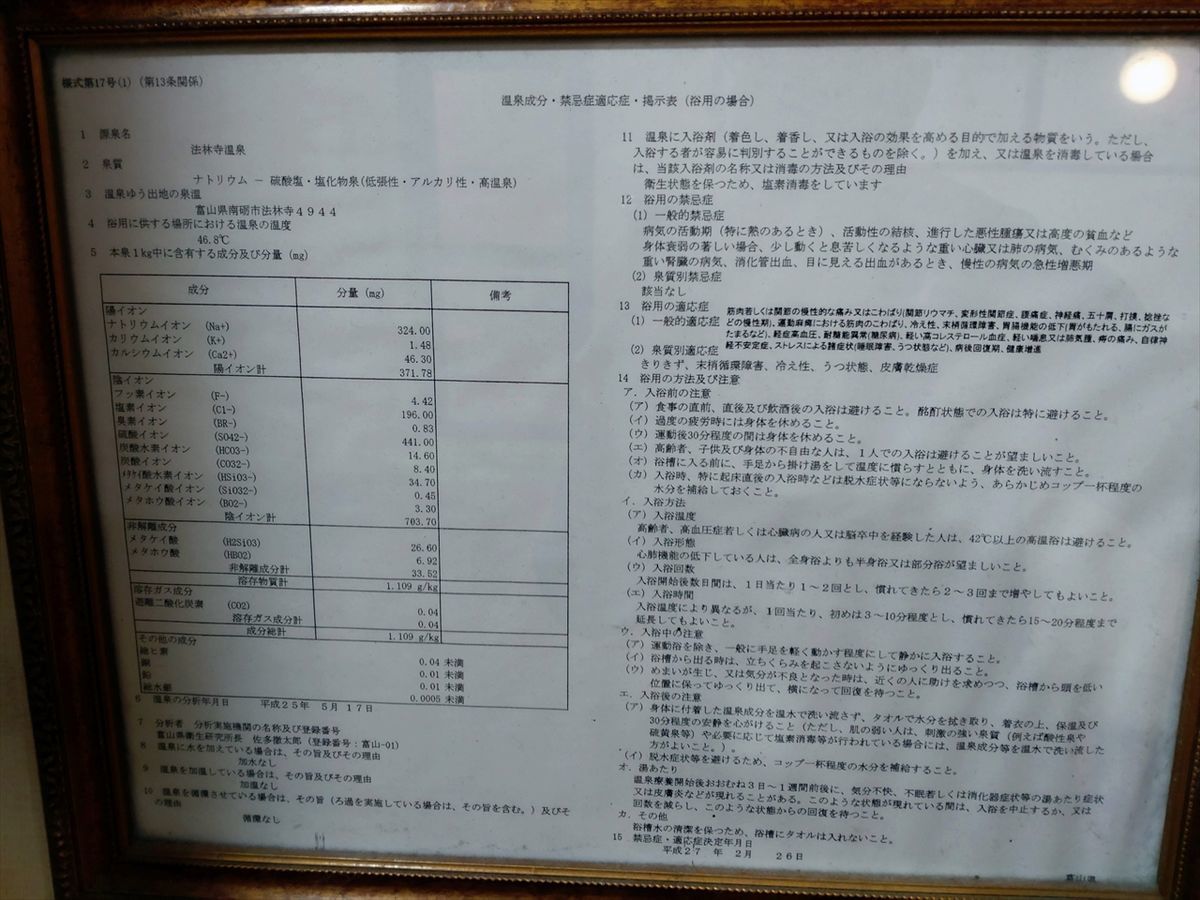 様式第17号(1)（第13条関係）
温泉成分・禁忌症適応症・掲示表（浴用の場合）
1 源泉名
法林寺温泉
2 泉質
ナトリウム － 硫酸塩・塩化物泉(低張性・アルカリ性・高温泉)
3 温泉ゆう出地の泉温
富山県南砺市法林寺４９４４
4 浴用に供する場所における温泉の温度
46.8℃
5 本泉１kg中に含有する成分及び分量（mg）
成分 分量（mg） 備考
陽イオン
ナトリウムイオン (Na+) 324.00
カリウムイオン (K+) 1.48
カルシウムイオン (Ca2+) 46.30
陽イオン計 371.78
陰イオン
フッ素イオン (F-) 4.42
塩素イオン (C1-) 196.00
臭素イオン (BR-) 0.83
硫酸イオン (SO42-) 441.00
炭酸水素イオン (HCO3-) 14.60
炭酸イオン (CO32-) 8.40
ﾒﾀｹｲ酸水素イオン (HSiO3-) 34.70
メタケイ酸イオン (SiO32-) 0.45
メタホウ酸イオン (BO2-) 3.30
陰イオン計 703.70
非解離成分
メタケイ酸 (H2SiO3) 26.60
メタホウ酸 (HBO2) 6.92
非解離成分計 33.52
溶存物質計 1.109 g/kg
溶存ガス成分
遊離二酸化炭素 (CO2) 0.04
溶存ガス成分計 0.04
成分総計 1.109 g/kg
その他の成分
総ヒ素 0.04 未満
銅 0.01 未満
鉛 0.01 未満
総水銀 0.0005 未満
6 温泉の分析年月日 平成２５年 ５月 １７日
7 分析者 分析実施機関の名称及び登録番号
富山県衛生研究所長 佐多徹太郎（登録番号：富山-01）
8 温泉に水を加えている場合は、その旨及びその理由
加水なし
9 温泉を加温している場合は、その旨及びその理由
加温なし
10 温泉を循環させている場合は、その旨（ろ過を実施している場合は、その旨を含む。）及びそ
の理由
循環なし
11 温泉に入浴剤（着色し、着香し、又は入浴の効果を高める目的で加える物質をいう。ただし、
入浴する者が容易に判別することができるものを除く。）を加え、又は温泉を消毒している場合
は、当該入浴剤の名称又は消毒の方法及びその理由
衛生状態を保つため、塩素消毒をしています
12 浴用の禁忌症
(1) 一般的禁忌症
病気の活動期（特に熱のあるとき）、活動性の結核、進行した悪性腫瘍又は高度の貧血など
身体衰弱の著しい場合、少し動くと息苦しくなるような重い心臓又は肺の病気、むくみのあるような
重い腎臓の病気、消化管出血、目に見える出血があるとき、慢性の病気の急性増悪期
(2) 泉質別禁忌症
該当なし
13 浴用の適応症
(1) 一般的適応症
筋肉若しくは関節の慢性的な痛み又はこわばり(関節リウマチ、変形性関節症、腰痛症、神経痛、五十肩、打撲、捻挫な
どの慢性期)、運動麻痺における筋肉のこわばり、冷え性、末梢循環障害、胃腸機能の低下(胃がもたれる、腸にガスが
たまるなど)、軽症高血圧、耐糖能異常(糖尿病)、軽い高コレステロール血症、軽い喘息又は肺気腫、痔の痛み、自律神
経不安定症、ストレスによる諸症状(睡眠障害、うつ状態など)、病後回復期、健康増進
(2) 泉質別適応症
きりきず、末梢循環障害、冷え性、うつ状態、皮膚乾燥症
14 浴用の方法及び注意
ア．入浴前の注意
(ア) 食事の直前、直後及び飲酒後の入浴は避けること。酩酊状態での入浴は特に避けること。
(イ) 過度の疲労時には身体を休めること。
(ウ) 運動後30分程度の間は身体を休めること。
(エ) 高齢者、子供及び身体の不自由な人は、１人での入浴は避けることが望ましいこと。
(オ) 浴槽に入る前に、手足から掛け湯をして温度に慣らすとともに、身体を洗い流すこと。
(カ) 入浴時、特に起床直後の入浴時などは脱水症状等にならないよう、あらかじめコップ一杯程度の
水分を補給しておくこと。
イ．入浴方法
(ア) 入浴温度
高齢者、高血圧症若しくは心臓病の人又は脳卒中を経験した人は、42℃以上の高温浴は避けること。
(イ) 入浴形態
心肺機能の低下している人は、全身浴よりも半身浴又は部分浴が望ましいこと。
(ウ) 入浴回数
入浴開始後数日間は、１日当たり１～２回とし、慣れてきたら２～３回まで増やしてもよいこと。
(エ) 入浴時間
入浴温度により異なるが、１回当たり、初めは３～10分程度とし、慣れてきたら15～20分程度まで
延長してもよいこと。
ウ．入浴中の注意
(ア) 運動浴を除き、一般に手足を軽く動かす程度にして静かに入浴すること。
(イ) 浴槽から出る時は、立ちくらみを起こさないようにゆっくり出ること。
(ウ) めまいが生じ、又は気分が不良となった時は、近くの人に助けを求めつつ、浴槽から頭を低い
位置に保ってゆっくり出て、横になって回復を待つこと。
エ．入浴後の注意
(ア) 身体に付着した温泉成分を温水で洗い流さず、タオルで水分を拭き取り、着衣の上、保温及び
30分程度の安静を心がけること（ただし、肌の弱い人は、刺激の強い泉質（例えば酸性泉や
硫黄泉等）や必要に応じて塩素消毒等が行われている場合には、温泉成分等を温水で洗い流した
方がよいこと。）。
(イ) 脱水症状等を避けるため、コップ一杯程度の水分を補給すること。
オ．湯あたり
温泉療養開始後おおむね３日～１週間前後に、気分不快、不眠若しくは消化器症状等の湯あたり症状
又は皮膚炎などが現れることがある。このような状態が現れている間は、入浴を中止するか、又は
回数を減らし、このような状態からの回復を待つこと。
カ．その他
浴槽水の清潔を保つため、浴槽にタオルは入れないこと。
15 禁忌症・適応症決定年月日
平成２７ 年 ２月 ２６日
富山県